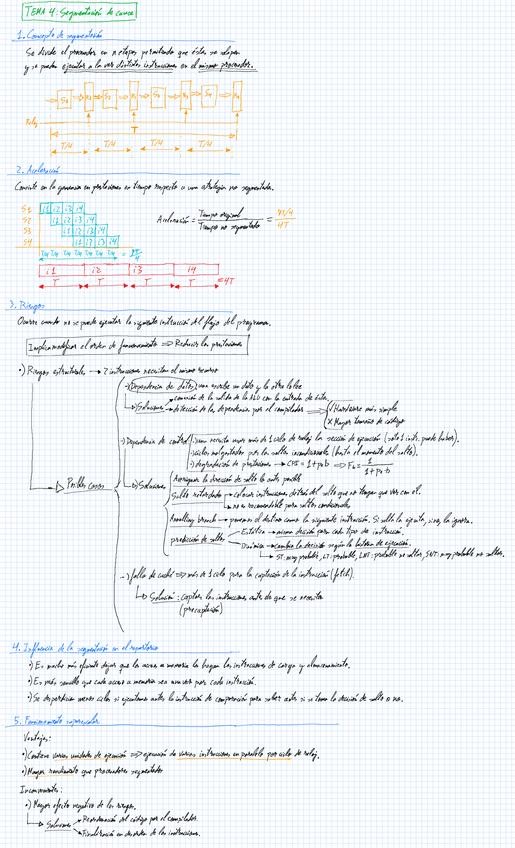 TEMA 4: Segmentación de cauce
1. Concepto de segmentación
Se divide el procesador en n etapas permitiendo que éstas se solapen
y se puedan ejecutar a la vez distintas instrucciones en el mismo procesador.
S1 R1 S2 R2 S3 R3 S4 R4
Reloj
T
T/4 T/4 T/4 T/4
2. Aceleración
Consiste en la ganancia en prestaciones en tiempo respecto a una estrategia no segmentada.
S1 i1 i2 i3 i4
S2 i1 i2 i3 i4
S3 i1 i2 i3 i4
S4 i1 i2 i3 i4
Aceleración = Tiempo original / Tiempo no segmentado = 7T/4 / 4T
T/4 T/4 T/4 T/4 T/4 T/4 T/4 = 7T/4
i1 i2 i3 i4
T T T T = 4T
3. Riesgos
Ocurre cuando no se puede ejecutar la siguiente instrucción del flujo del programa.
Implica modificar el orden de funcionamiento => Reducir las prestaciones
•) Riesgos estructurales → 2 instrucciones necesitan el mismo recurso
Posibles casos
→ Dependencia de datos: una escribe un dato y la otra lo lee
Soluciones → conexión de la salida de la ALU con la entrada de ésta.
→ detección de la dependencia por el compilador => ✓ Hardware más simple
X Mayor tamaño de código
→ Dependencia de control
una necesita usar más de 1 ciclo de reloj la sección de ejecución (solo 1 inst. puede haber).
ciclos malgastados por los saltos incondicionales (hasta el momento del salto).
degradación de prestaciones → CPI = 1+p·b => Fb = 1 / 1+p·b
Soluciones
Averiguar la dirección de salto lo antes posible
Salto retardado → colocar instrucciones detrás del salto que no tengan que ver con él.
→ no es recomendable para saltos condicionales.
Annulling branch → ponemos el destino como la siguiente instrucción. Si salta la ejecuta, sino, la ignora.
predicción de saltos
Estática → misma decisión para cada tipo de instrucción.
Dinámica → cambia la decisión según la historia de ejecución.
→ ST: muy probable, LT: probable, LNT: probable no saltar, SNT: muy probable no saltar.
→ fallo de caché => más de 1 ciclo para la captación de la instrucción (fetch).
Solución: captar las instrucciones antes de que se necesiten
(precaptación)
4. Influencia de la segmentación en el repertorio
•) Es mucho más eficiente dejar que los accesos a memoria lo hagan las instrucciones de carga y almacenamiento.
•) Es más sencillo que cada acceso a memoria sea una vez por cada instrucción.
•) Se desperdician menos ciclos si ejecutamos antes la instrucción de comparación para saber antes si se toma la decisión de salto o no.
5. Funcionamiento superescalar
Ventajas:
•) Contiene varias unidades de ejecución => ejecución de varias instrucciones en paralelo por ciclo de reloj.
•) Mayor rendimiento que procesadores segmentados
Inconvenientes:
•) Mayor efecto negativo de los riesgos.
Soluciones → Reordenación del código por el compilador.
→ Finalización en desorden de las instrucciones.